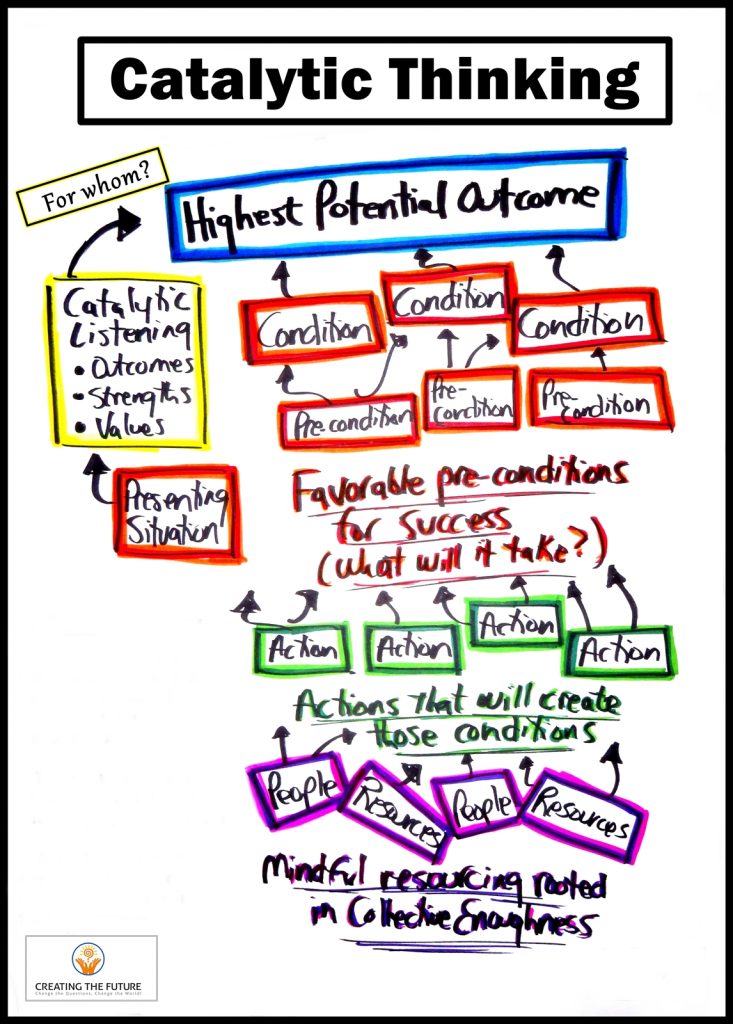 Catalytic Thinking
For whom?
Highest Potential Outcome
Catalytic
Listening
• Outcomes
• Strengths
• Values
Presenting
Situation
Condition
Condition
Condition
Pre-condition
Pre-
condition
Pre-
Condition
Favorable pre-conditions
for success
(what will it take?)
Action
Action
Action
Action
Actions that will create
those conditions
People
Resources
People
Resources
Mindful resourcing rooted
in Collective Enoughness
CREATING THE FUTURE
Change the Questions, Change the World!